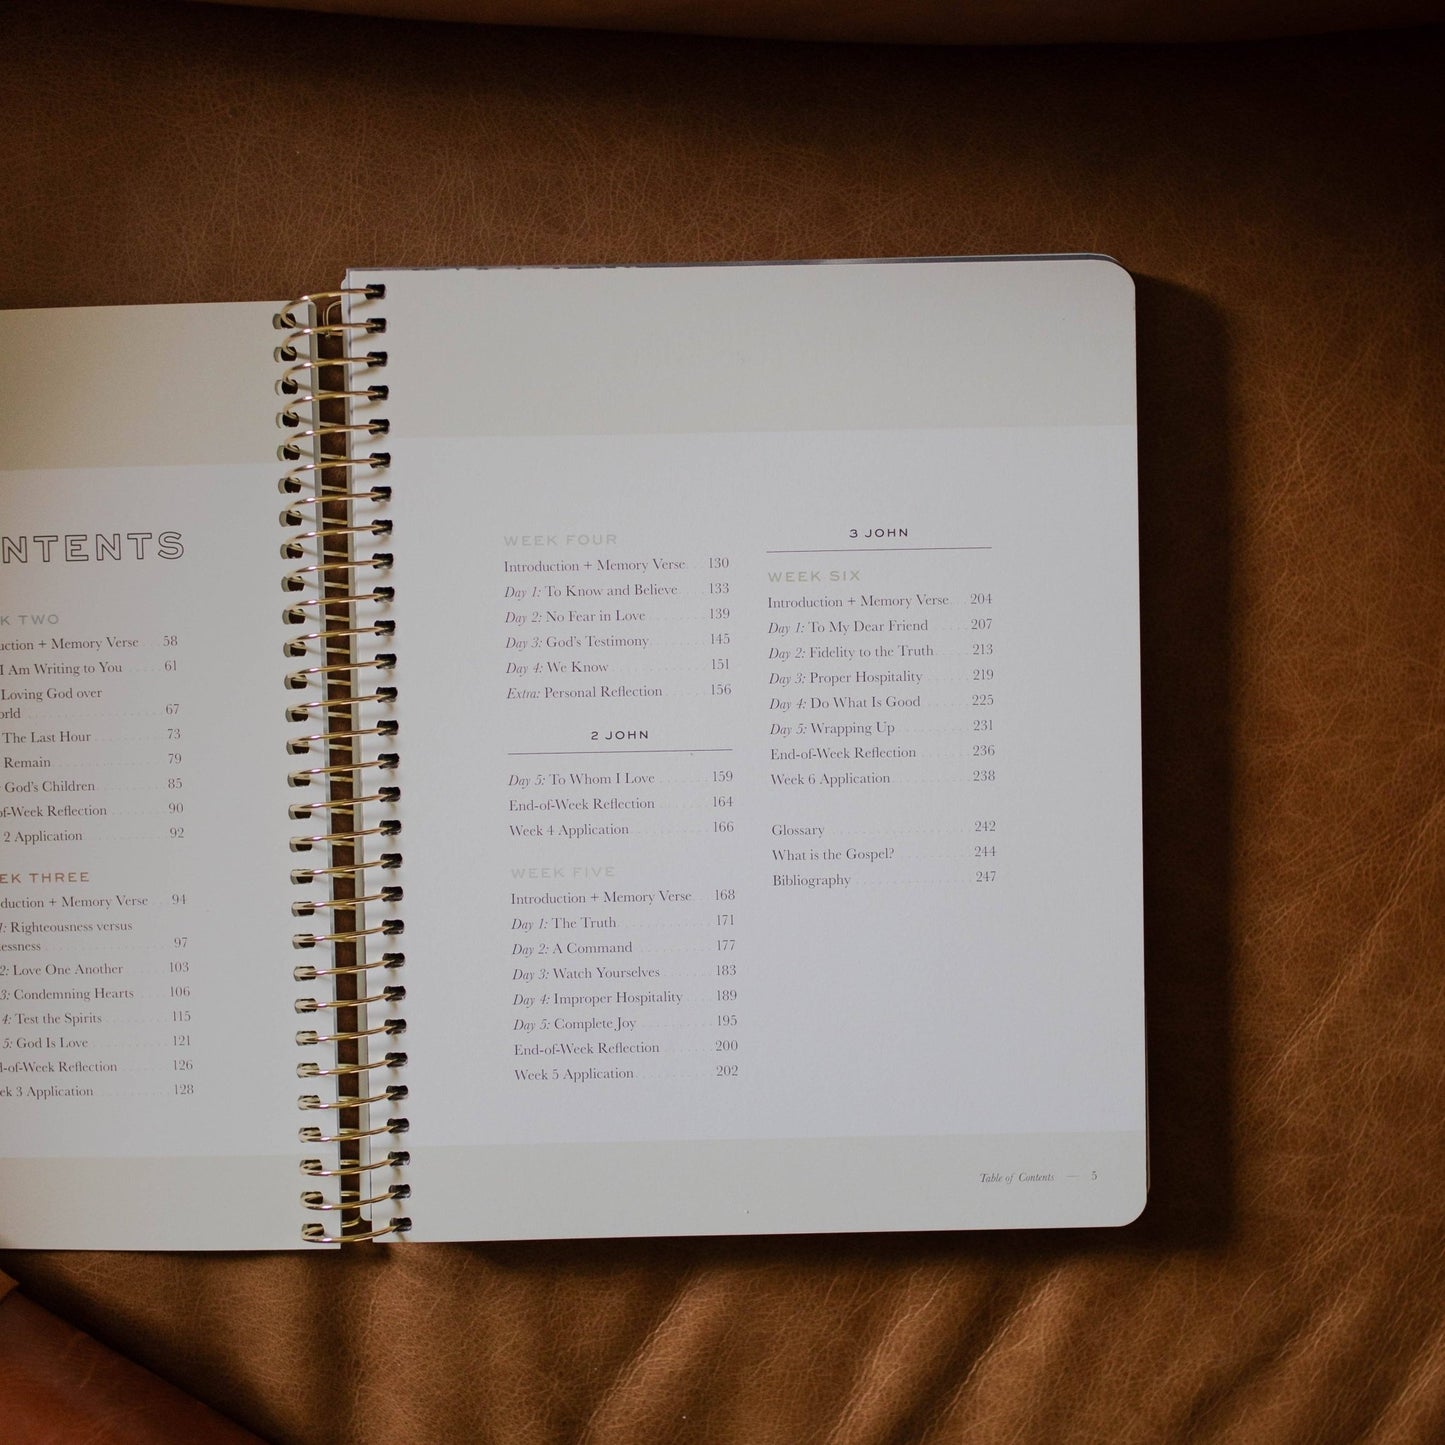 NTENTS
TWO
+ Memory Verse 58
I Am Writing to You 61
Loving God over
67
The Last Hour 73
Remain 79
God's Children 85
of-Week Reflection 90
2 Application 92
THREE
+ Memory Verse 94
Righteousness versus
97
2: Love One Another 103
3: Condemning Hearts 106
4: Test the Spirits 115
5: God Is Love 121
-of-Week Reflection 126
3 Application 128
WEEK FOUR
Introduction + Memory Verse 130
Day 1: To Know and Believe 133
Day 2: No Fear in Love 139
Day 3: God's Testimony 145
Day 4: We Know 151
Extra: Personal Reflection 156
2 JOHN
Day 5: To Whom I Love 159
End-of-Week Reflection 164
Week 4 Application 166
WEEK FIVE
Introduction + Memory Verse 168
Day 1: The Truth 171
Day 2: A Command 177
Day 3: Watch Yourselves 183
Day 4: Improper Hospitality 189
Day 5: Complete Joy 195
End-of-Week Reflection 200
Week 5 Application 202
3 JOHN
WEEK SIX
Introduction + Memory Verse 204
Day 1: To My Dear Friend 207
Day 2: Fidelity to the Truth 213
Day 3: Proper Hospitality 219
Day 4: Do What Is Good 225
Day 5: Wrapping Up 231
End-of-Week Reflection 236
Week 6 Application 238
Glossary 242
What is the Gospel? 244
Bibliography 247
Table of Contents — 5